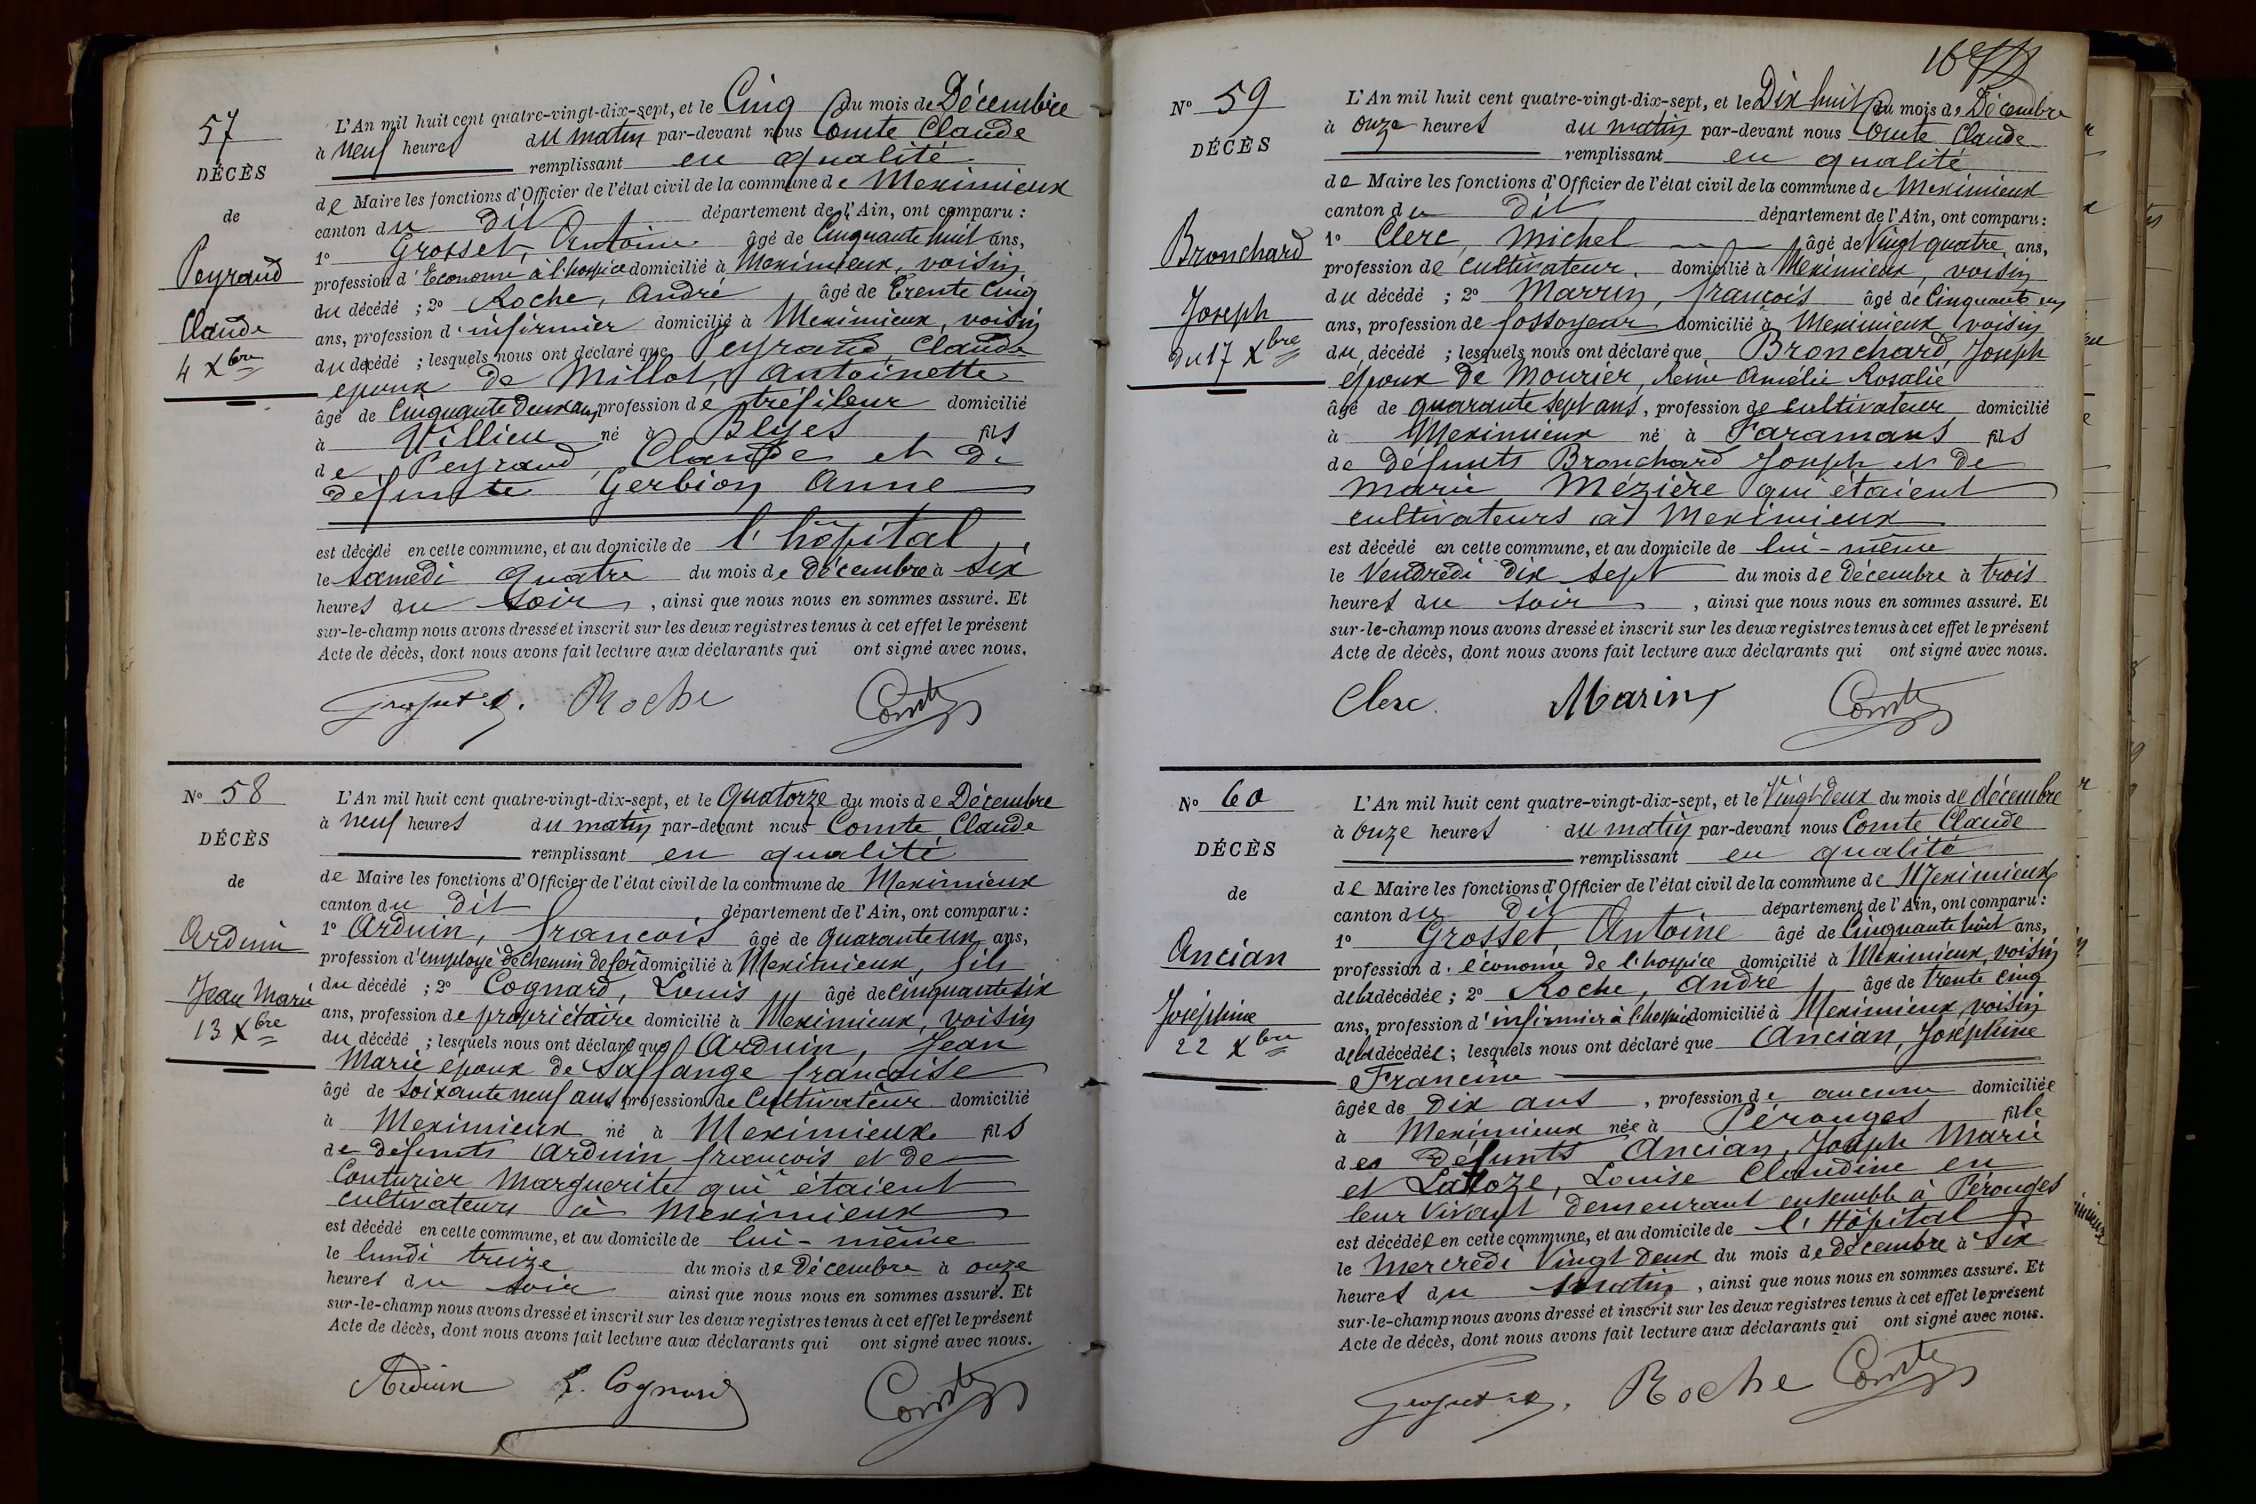 57
DÉCÈS
de
Peyraud
Claude
4 Xbre
L'An mil huit cent quatre-vingt-dix-sept, et le Cinq du mois de Décembre
à neuf heures du matin par-devant nous Comte Claude
remplissant en qualité
de Maire les fonctions d'Officier de l'état civil de la commune de Meximieux
canton du dit département de l'Ain, ont comparu :
1° Grosset, Antoine âgé de Cinquante huit ans,
profession d'Econome à l'hospice domicilié à Meximieux, voisin
du décédé ; 2° Roche, André âgé de Trente Cinq
ans, profession d'infirmier domicilié à Meximieux, voisin
du décédé ; lesquels nous ont déclaré que Peyraud, Claude
époux de Millot, Antoinette
âgé de Cinquante deux ans, profession de trefileur domicilié
à Villieu né à Blyes fils
de Peyraud, Claude et de
défunte Gerbion Anne
est décédé en cette commune, et au domicile de l'hôpital,
le samedi quatre du mois de Décembre à six
heures du soir, ainsi que nous nous en sommes assuré. Et
sur-le-champ nous avons dressé et inscrit sur les deux registres tenus à cet effet le présent
Acte de décès, dont nous avons fait lecture aux déclarants qui ont signé avec nous.
Roche Comte
N° 58
DÉCÈS
de
Arduin
Jean Marie
13 Xbre
L'An mil huit cent quatre-vingt-dix-sept, et le quatorze du mois de Décembre
à neuf heures du matin par-devant nous Comte Claude
remplissant en qualité
de Maire les fonctions d'Officier de l'état civil de la commune de Meximieux
canton du dit département de l'Ain, ont comparu :
1° Arduin, françois âgé de quarante un ans,
profession d'employé de chemin de fer domicilié à Meximieux, fils
du décédé ; 2° Cognard, Louis âgé de cinquante six
ans, profession de propriétaire domicilié à Meximieux, voisin
du décédé ; lesquels nous ont déclaré que Arduin, Jean
Marie époux de Saffange françoise
âgé de soixante neuf ans profession de Cultivateur domicilié
à Meximieux né à Meximieux fils
de défunts Arduin françois et de
Couturier Marguerite qui étaient
cultivateurs à Meximieux
est décédé en cette commune, et au domicile de lui-même
le lundi treize du mois de Décembre à onze
heures du soir ainsi que nous nous en sommes assuré. Et
sur-le-champ nous avons dressé et inscrit sur les deux registres tenus à cet effet le présent
Acte de décès, dont nous avons fait lecture aux déclarants qui ont signé avec nous.
Arduin L. Cognard Comte
N° 59
DÉCÈS
Bronchard
Joseph
du 17 Xbre
L'An mil huit cent quatre-vingt-dix-sept, et le Dix huit du mois de Décembre
à onze heures du matin par-devant nous Comte Claude
remplissant en qualité
de Maire les fonctions d'Officier de l'état civil de la commune de Meximieux
canton du dit département de l'Ain, ont comparu :
1° Clerc, Michel âgé de Vingt quatre ans,
profession de cultivateur, domicilié à Meximieux, voisin
du décédé ; 2° Marrin, françois âgé de Cinquante un
ans, profession de fossoyeur domicilié à Meximieux voisin
du décédé ; lesquels nous ont déclaré que Bronchard, Joseph
époux de Mourier, Reine Amélie Rosalie
âgé de quarante sept ans, profession de cultivateur domicilié
à Meximieux né à Faramans fils
de défunts Bronchard Joseph et de
Marie Mézière qui étaient
cultivateurs à Meximieux
est décédé en cette commune, et au domicile de lui-même
le Vendredi dix sept du mois de Décembre à trois
heures du soir, ainsi que nous nous en sommes assuré. Et
sur-le-champ nous avons dressé et inscrit sur les deux registres tenus à cet effet le présent
Acte de décès, dont nous avons fait lecture aux déclarants qui ont signé avec nous.
Clerc. Marin Comte
N° 60
DÉCÈS
de
Ancian
Joséphine
22 Xbre
L'An mil huit cent quatre-vingt-dix-sept, et le Vingt-deux du mois de décembre
à onze heures du matin par-devant nous Comte Claude
remplissant en qualité
de Maire les fonctions d'Officier de l'état civil de la commune de Meximieux
canton du dit département de l'Ain, ont comparu :
1° Grosset, Antoine âgé de Cinquante huit ans,
profession d'économe de l'hospice domicilié à Meximieux, voisin
de la décédée ; 2° Roche, André âgé de trente cinq
ans, profession d'infirmier à l'hospice domicilié à Meximieux voisin
de la décédée ; lesquels nous ont déclaré que Ancian, Joséphine
Francine
âgée de Dix ans, profession de aucune domiciliée
à Meximieux née à Pérouges fille
des défunts Ancian, Joseph Marie
et Laroze, Louise Claudine en
leur vivant demeurant ensemble à Pérouges
est décédée en cette commune, et au domicile de l'Hôpital
le Mercredi Vingt deux du mois de décembre à six
heures du matin, ainsi que nous nous en sommes assuré. Et
sur-le-champ nous avons dressé et inscrit sur les deux registres tenus à cet effet le présent
Acte de décès, dont nous avons fait lecture aux déclarants qui ont signé avec nous.
Roche Comte